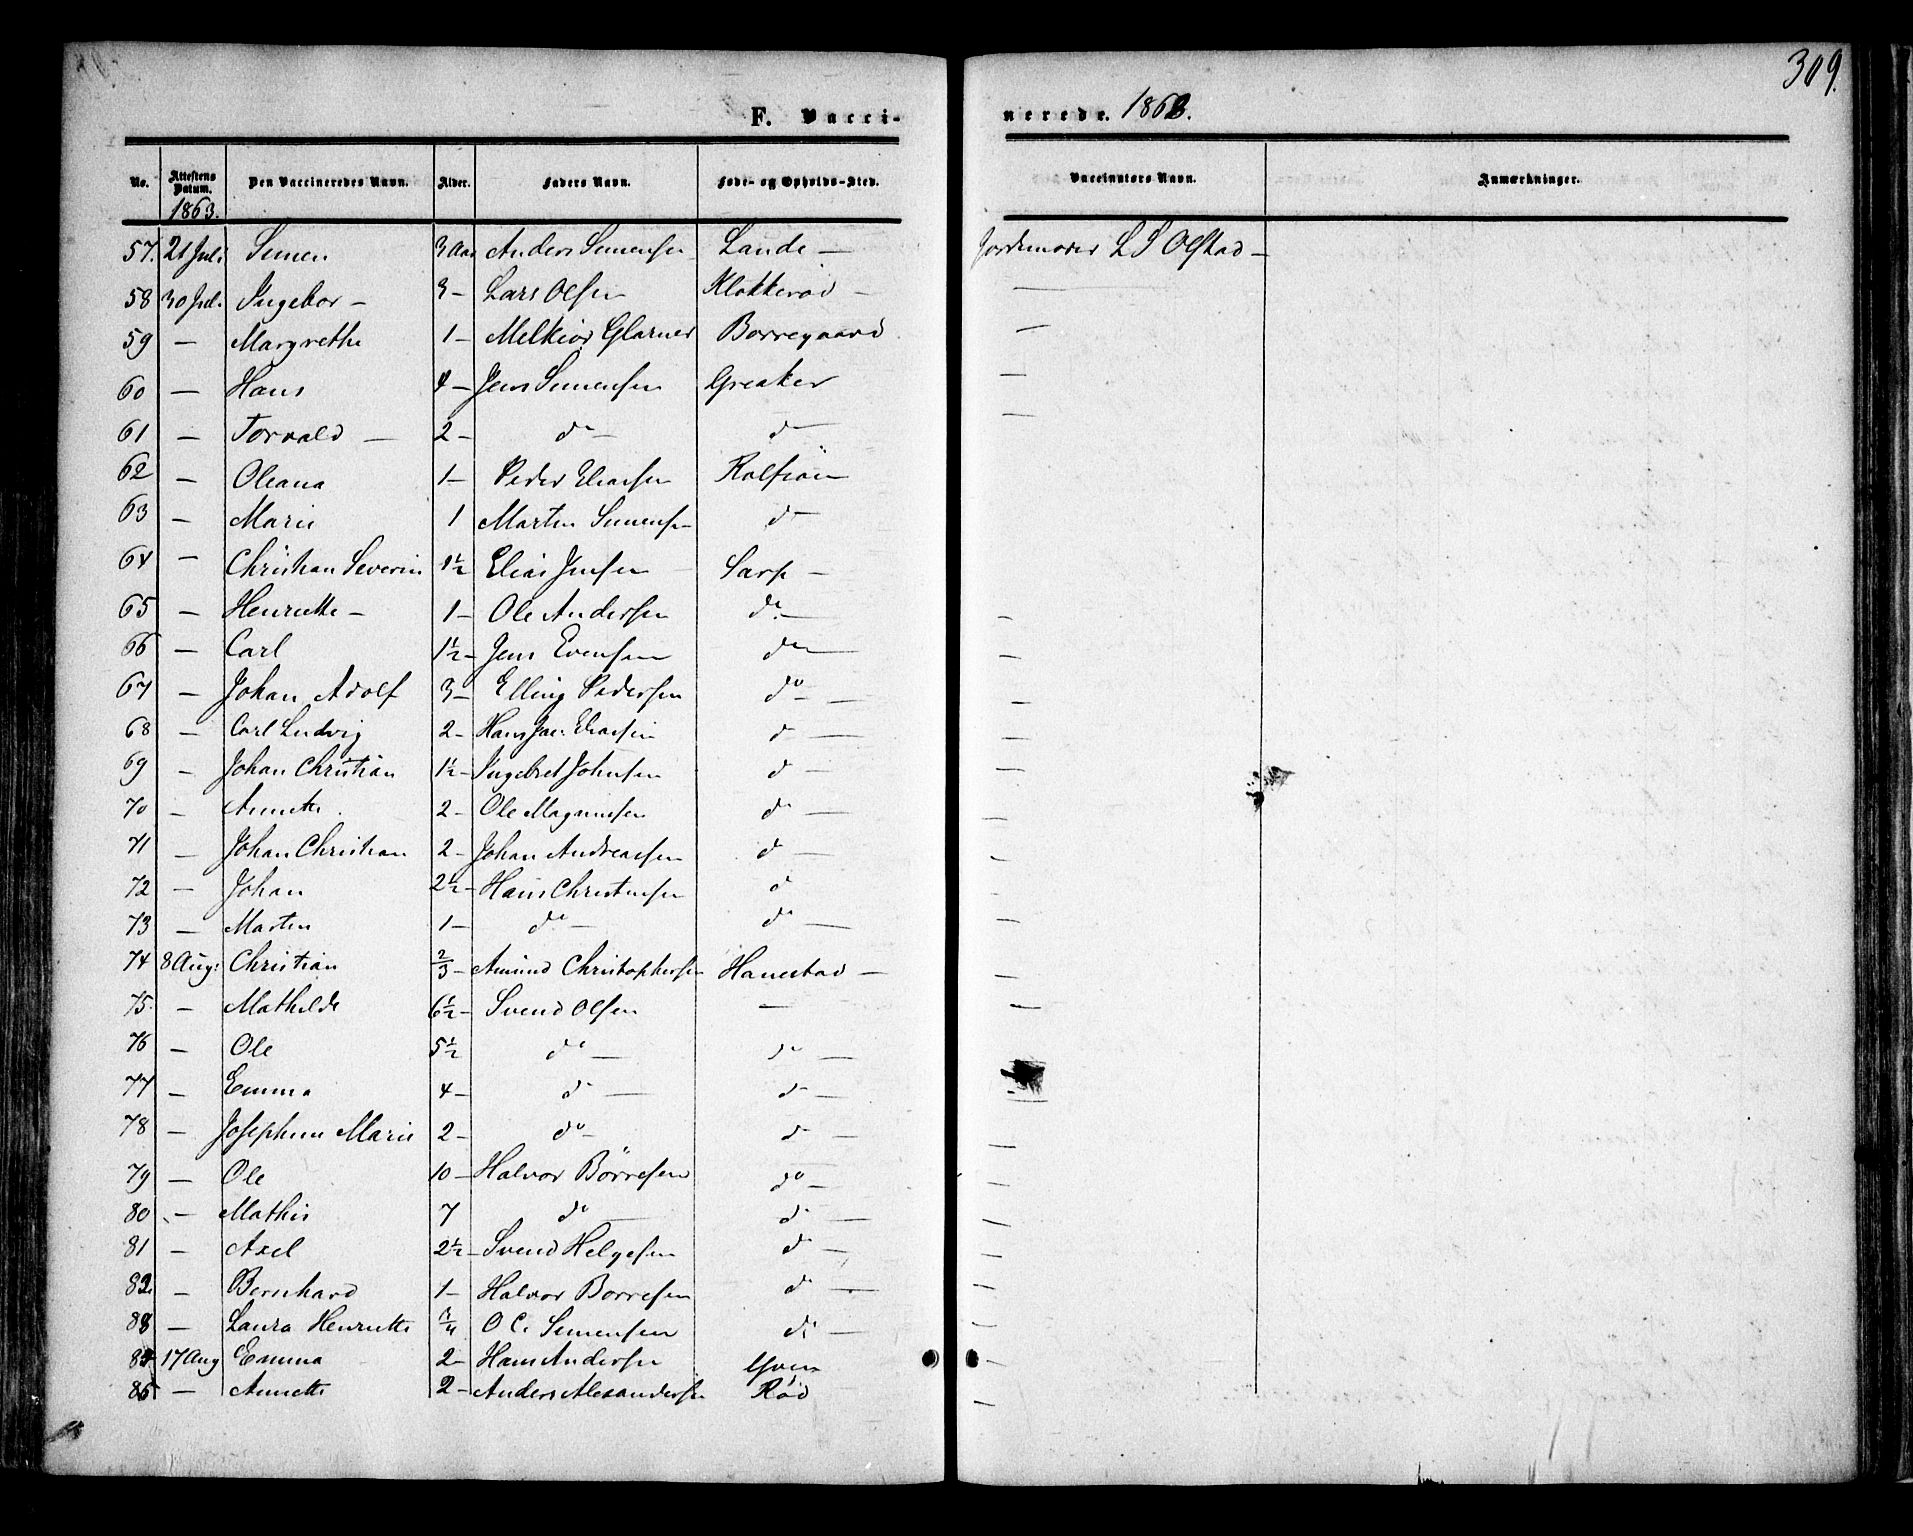 309.
F. Vaccinerede. 1863.
No. Attestens Datum. Den Vaccineredes Navn. Alder. Faders Navn. Føde- og Opholds-Sted. Vaccinators Navn. Anmærkninger.
1863.
57. 21 Juli Simen 3 Aar Anders Simensen Lande — Jordemoder L S Olstad —
58 30 Jul. Ingebor — 3 — Lars Olsen Klokkerød — —
59 — Margrethe 1 — Melkior Glarner Borregaard —
60 — Hans 4 — Jens Simensen Greaker —
61 — Torvald — 2 — do — do —
62 — Oleana 1 — Peder Eliassen Rolfsøen
63 — Marie 1 Marten Simensen do
64 — Christian Severin 1½ Elias Jensen Sarp —
65 — Henriette — 1 — Ole Andersen do — —
66 — Carl 1½ — Jens Evensen do — —
67 — Johan Adolf 3 — Elling Pedersen do — —
68 — Carl Ludvig 2 — Hans Jac: Eliassen do — —
69 — Johan Christian 1½ — Ingebret Johnsen do — —
70 — Annette. 2 — Ole Magnussen do — —
71 — Johan Christian 2 — Johan Andreassen do — —
72 — Johan 2½ — Hans Christensen do —
73 — Marten 1 — do — do — —
74 8 Aug: Christian 2/3 — Amund Christophersen Hanestad — —
75. — Mathilde 6½ — Svend Olsen — —
76 — Ole 5½ do — do —
77 — Emma 4 — do — do — —
78 — Josephine Marie 2 — do — do — —
79 — Ole 10 — Halvor Börresen do — —
80 — Mathis 7 do — do — —
81 — Axel 2½ — Svend Helgesen do — —
82 — Bernhard 1 — Halvor Borresen do — —
83 — Laura Henriette 3/4 O C. Simensen do — —
84 17 Aug Emma 2 — Hans Andersen Yven —
85 — Annette 2 — Anders Alexandersen Rød —